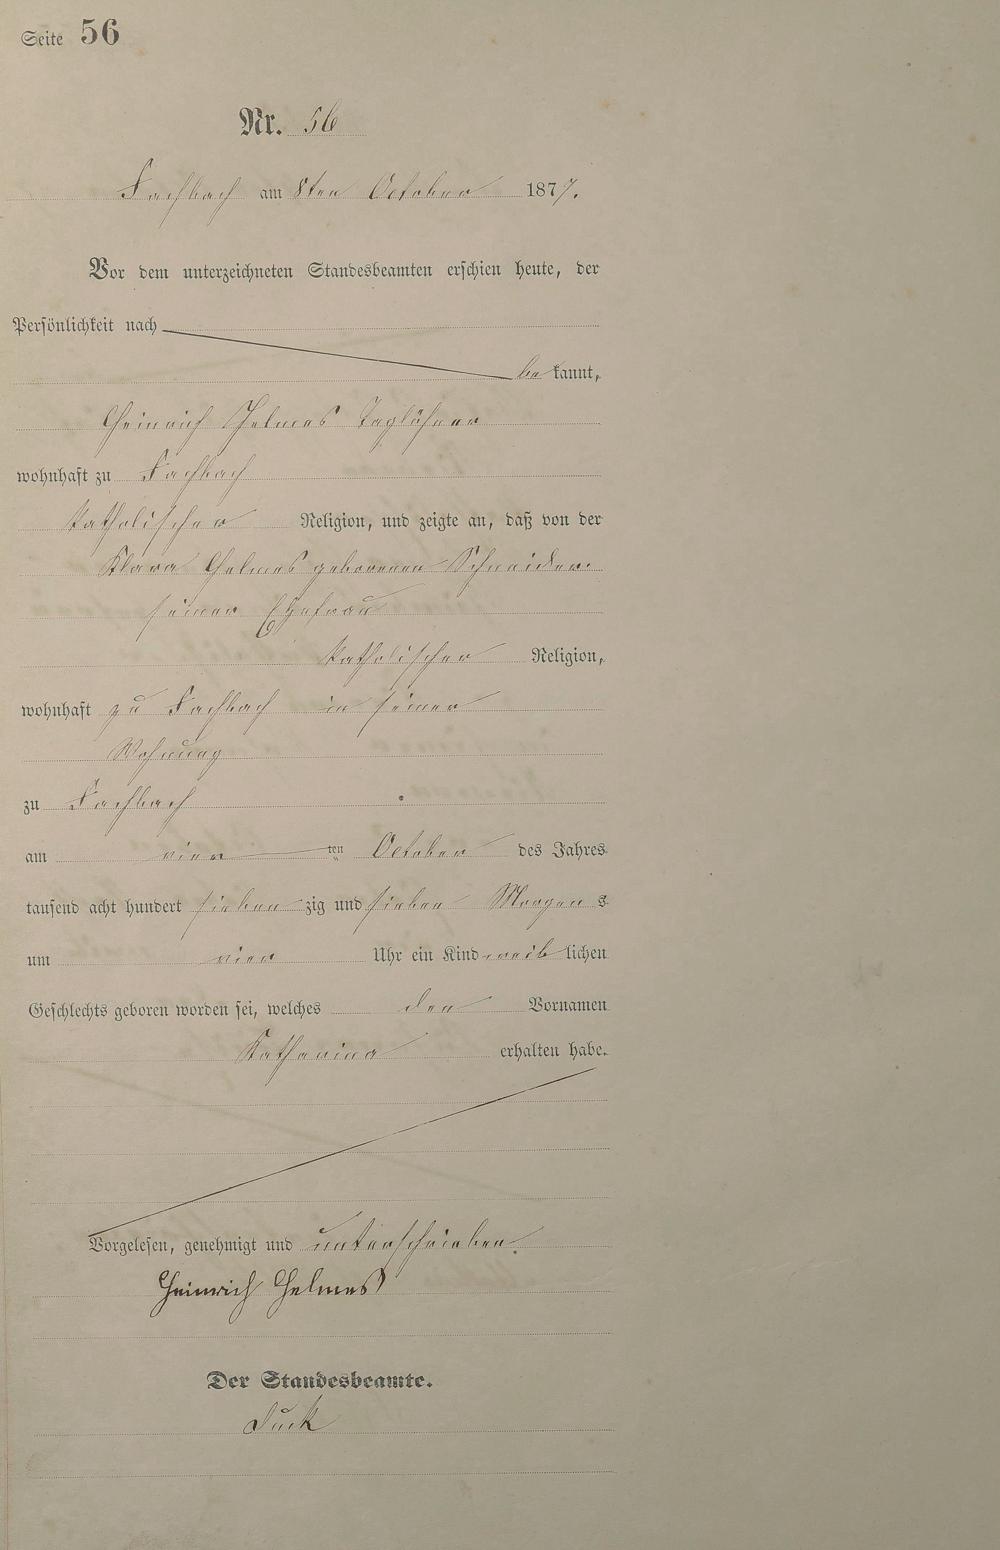 Seite 56
Nr. 56
Fachbach am 8ten October 1877.
Vor dem unterzeichneten Standesbeamten erschien heute, der
Persönlichkeit nach
be kannt,
Heinrich Helmes Taglöhner
wohnhaft zu Fachbach
katholischer Religion, und zeigte an, daß von der
Klara Helmes geborenen Schneider
seiner Ehefrau
katholischer Religion,
wohnhaft zu Fachbach in seiner
Wohnung
zu Fachbach
am vier ten October des Jahres
tausend acht hundert sieben zig und sieben Morgen s
um vier Uhr ein Kind weib lichen
Geschlechts geboren worden sei, welches den Vornamen
Katharina erhalten habe.
Vorgelesen, genehmigt und unterschrieben.
Heinrich Helmes
Der Standesbeamte.